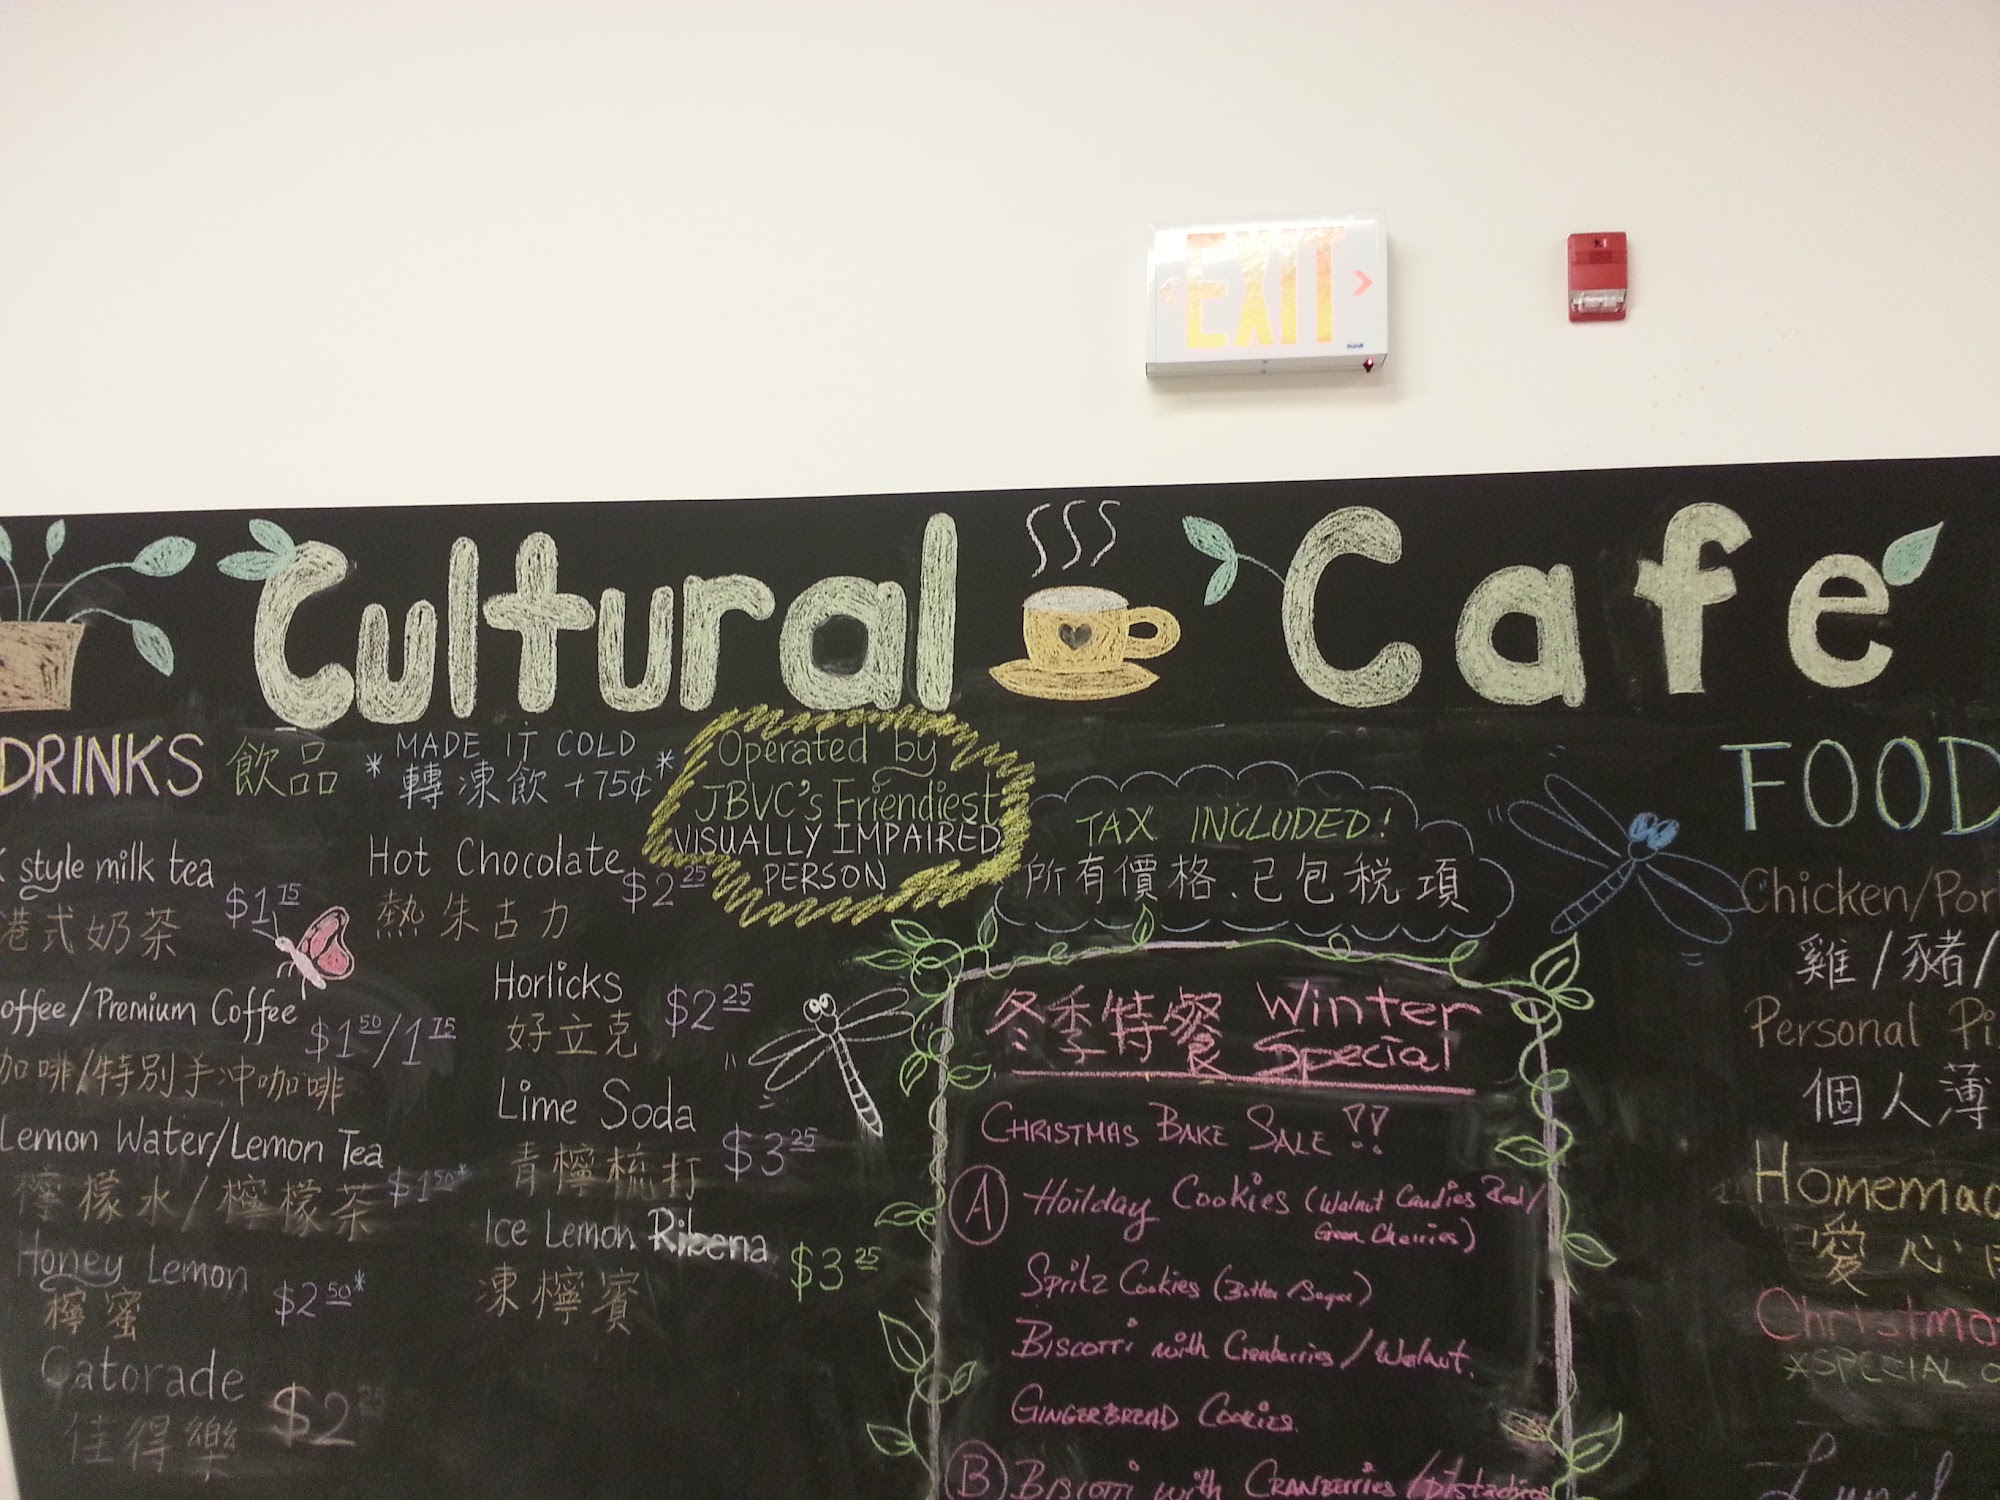 EXIT
Cultural Cafe
DRINKS 飲品
* MADE IT COLD *
轉凍飲 +75¢
Operated by
JBVC's Friendiest
VISUALLY IMPAIRED
PERSON
style milk tea $1.75
港式奶茶
offee/Premium Coffee $1.50/1.75
咖啡/特別手沖咖啡
Lemon Water/Lemon Tea $1.50*
檸檬水/檸檬茶
Honey Lemon $2.50*
檸蜜
Gatorade $2.25
佳得樂
Hot Chocolate $2.25
熱朱古力
Horlicks $2.25
好立克
Lime Soda $3.25
青檸梳打
Ice Lemon Ribena $3.25
凍檸賓
TAX INCLUDED!
所有價格、已包稅項
冬季特餐 Winter
Special
CHRISTMAS BAKE SALE!!
Ⓐ Hoilday Cookies (Walnut Candies Red/
Green Cherries)
Spritz Cookies (Butter/Sugar)
BISCOTTI with Cranberries/Walnut.
GINGERBREAD COOKIES.
Ⓑ BISCOTTI with CRANBERRIES/Pistachios
FOOD
Chicken/Por
雞/豬/
Personal Pi
個人薄
Homemad
愛心
Christma
*SPECIAL